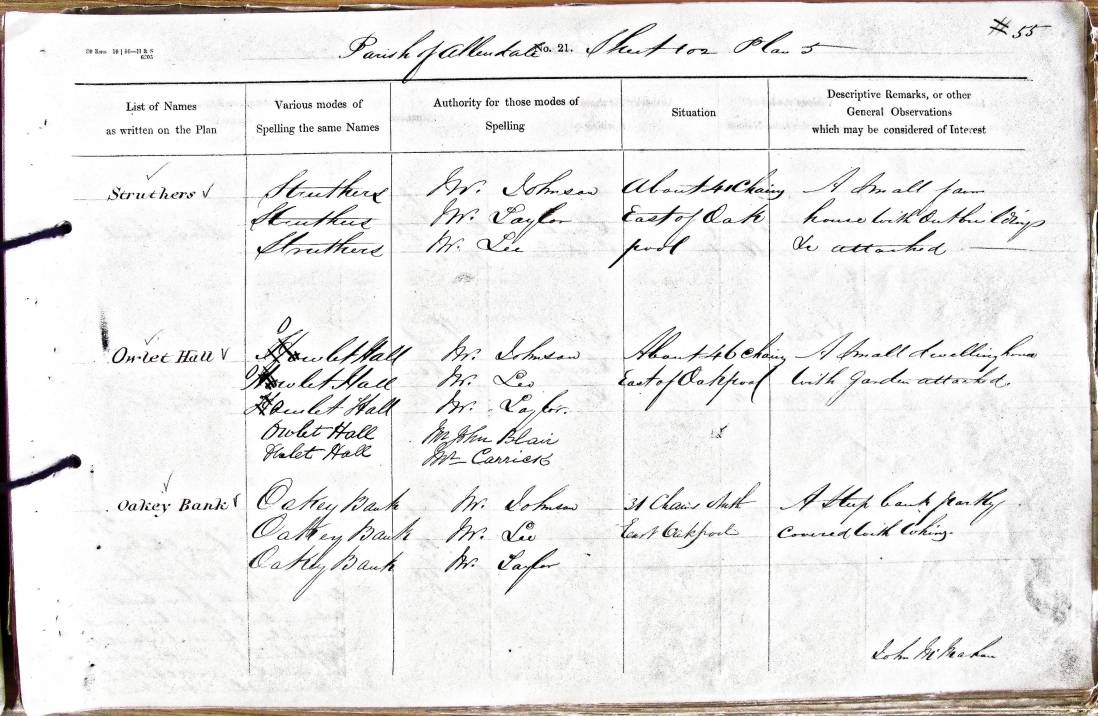 Parish of Allendale No. 21. Sheet 102 Plan 5
# 55
6205
List of Names
as written on the Plan
Various modes of
Spelling the same Names
Authority for those modes of
Spelling
Situation
Descriptive Remarks, or other
General Observations
which may be considered of Interest
Struthers
Struthers Mr. Johnson About 41 Chains A Small farm
Struthers Mr. Taylor East of Oak house with Outbuildings
Struthers Mr. Lee pool &c attached
Owlet Hall
Owlet Hall Mr. Johnson About 46 Chains A Small dwelling house
Owlet Hall Mr. Lee East of Oakpool with Garden attached.
Howlet Hall Mr. Taylor.
Owlet Hall Mr John Blair
Hall Mr Carrick
Oakey Bank
Oakey Bank Mr. Johnson 31 Chains A Steep bank partly
Oakey Bank Mr. Lee East Oakpool covered with
Oakey Bank Mr. Taylor
John McMahon